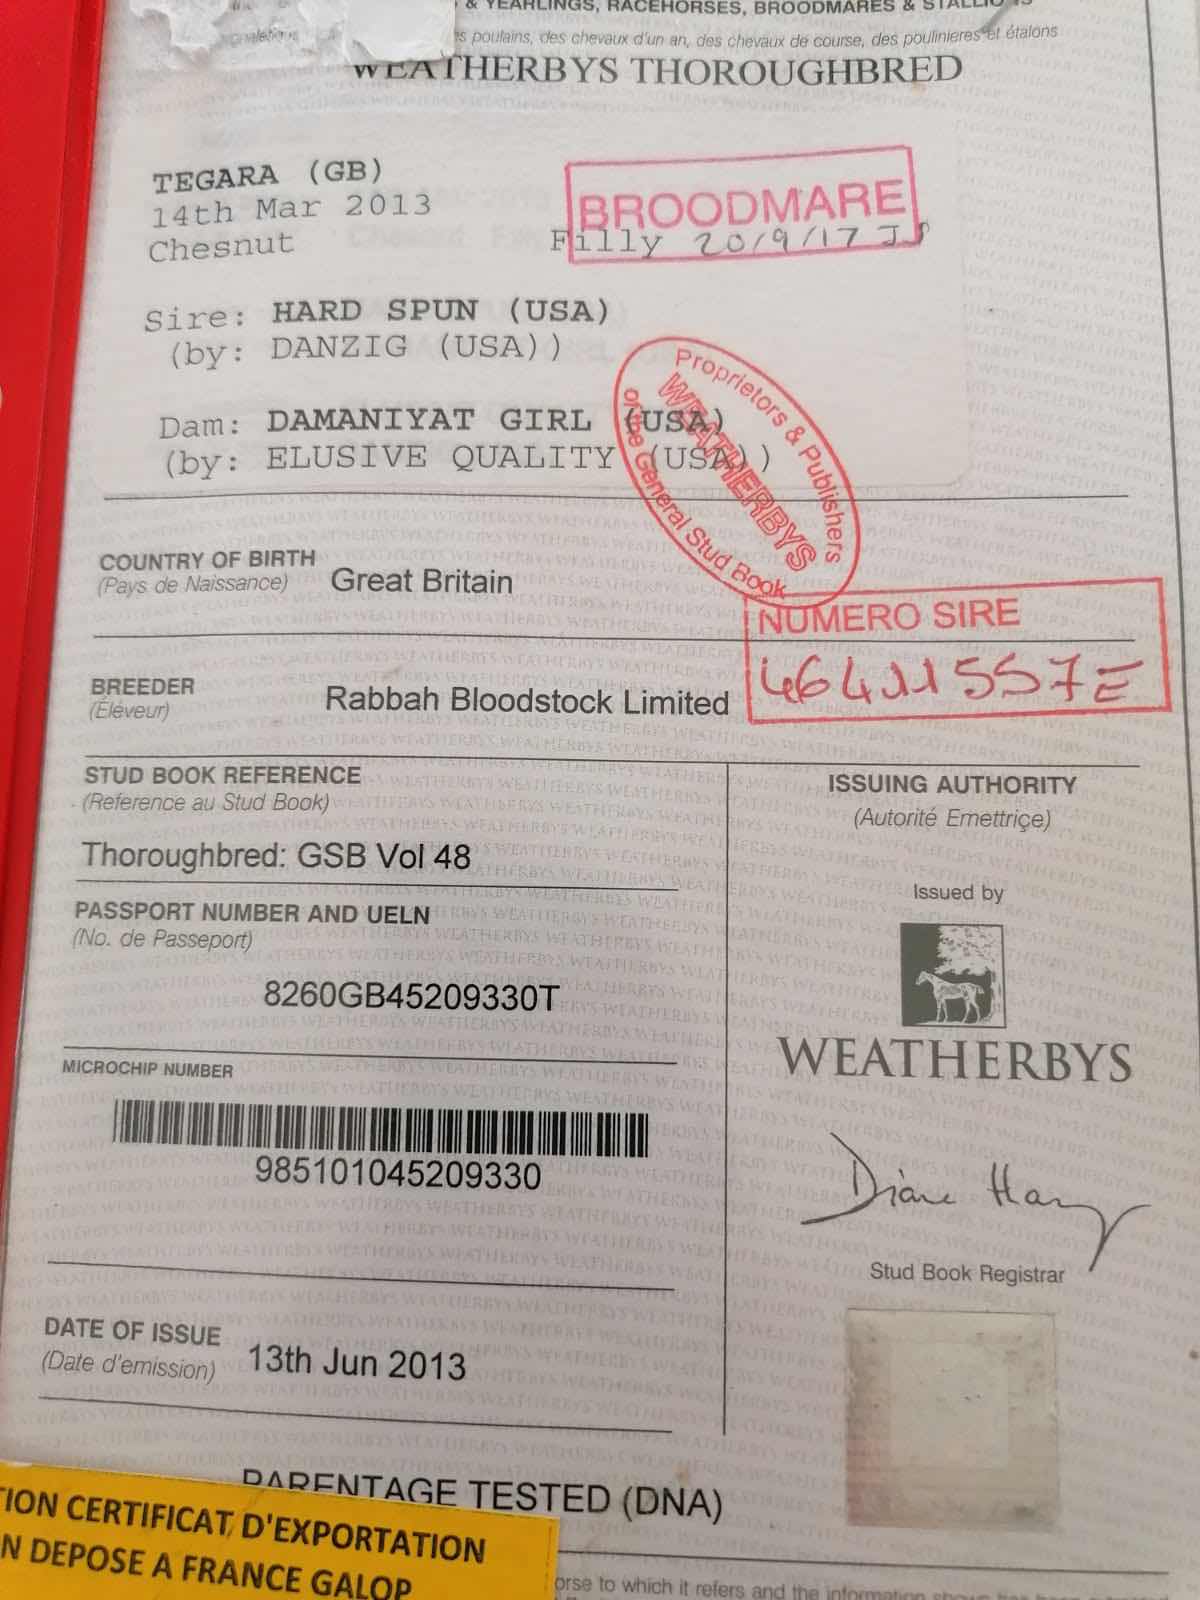 & YEARLINGS, RACEHORSES, BROODMARES &
poulains, des chevaux d'un an, des chevaux de course, des poulinieres et étalons
WEATHERBYS THOROUGHBRED
TEGARA (GB)
14th Mar 2013
Chesnut
Filly 20/9/17 JS
BROODMARE
Sire: HARD SPUN (USA)
(by: DANZIG (USA))
Dam: DAMANIYAT GIRL (USA)
(by: ELUSIVE QUALITY (USA))
Proprietors & Publishers
WEATHERBYS
of the General Stud Book
COUNTRY OF BIRTH
(Pays de Naissance)
Great Britain
NUMERO SIRE
46411557E
BREEDER
(Éleveur)
Rabbah Bloodstock Limited
STUD BOOK REFERENCE
(Reference au Stud Book)
Thoroughbred: GSB Vol 48
PASSPORT NUMBER AND UELN
(No. de Passeport)
8260GB45209330T
MICROCHIP NUMBER
985101045209330
DATE OF ISSUE
(Date d'emission)
13th Jun 2013
ISSUING AUTHORITY
(Autorité Emettriçe)
Issued by
WEATHERBYS
Diane Han
Stud Book Registrar
PARENTAGE TESTED (DNA)
TION CERTIFICAT D'EXPORTATION
N DEPOSE A FRANCE GALOP
orse to which it refers and the information